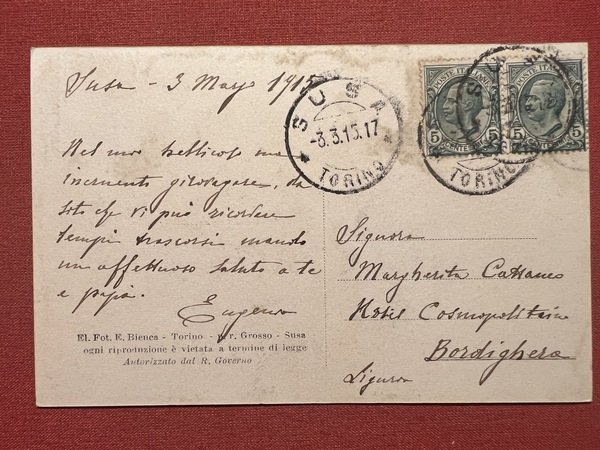 Susa - 3 Marzo 1915
Nel mio bellicoso ma
incruento girovagare, da
sito che vi può ricordare
tempi trascorsi mando
un affettuoso saluto a te
e papà.
Eugenio
El. Fot. E. Bienca - Torino - Grosso - Susa
ogni riproduzione è vietata a termine di legge
Autorizzato dal R. Governo
SUSA
-3.3.15.17
TORINO
POSTE ITALIANE
5 CENTESIMI 5
5
TORINO
Signora
Margherita Cattaneo
Hotel Cosmopolitain
Bordighera
Liguria